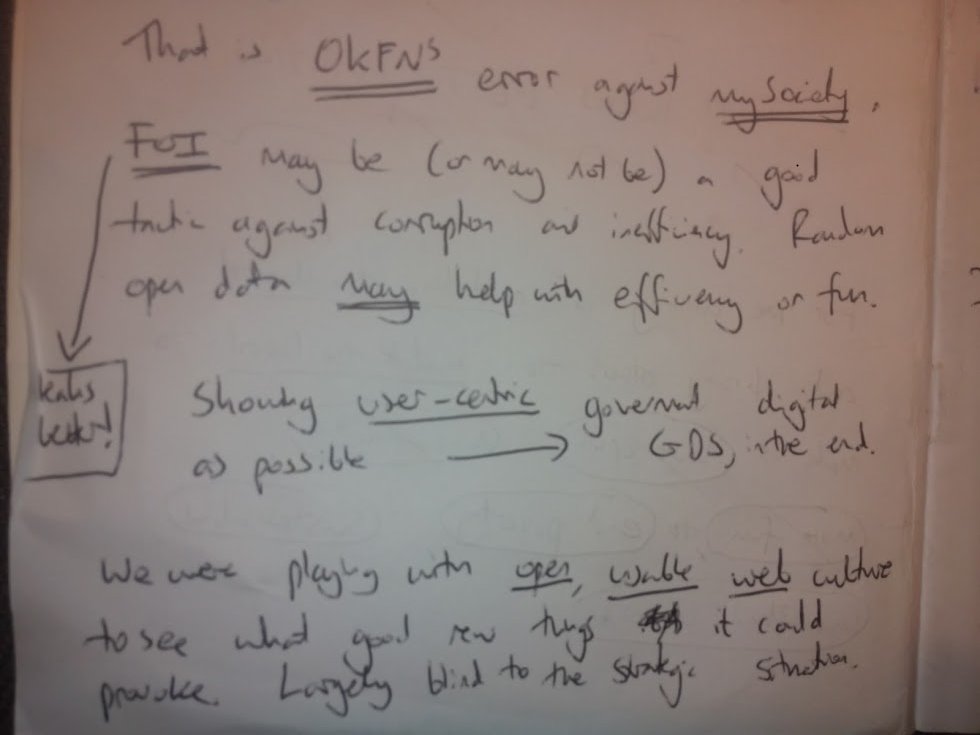 That is OKFNs error against mySociety.
FOI may be (or may not be) a good
tactic against corruption and inefficiency. Random
open data may help with efficiency or fun.
leaks
better!
Showing user-centric government digital
as possible → GDS, in the end.
We were playing with open, usable web culture
to see what good new things it could
provoke. Largely blind to the strategic situation.